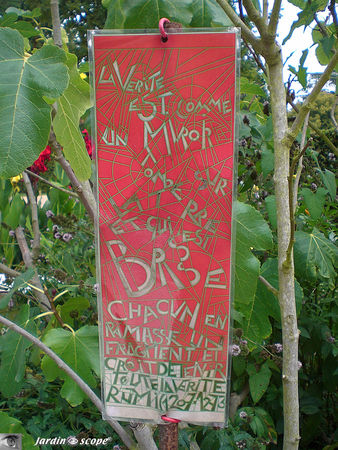 LA VÉRITÉ
EST COMME
UN MIROIR
TOMBÉ SUR
TERRE
ET QUI S'EST
BRISÉ
CHACUN EN
RAMASSE UN
FRAGMENT ET
CROIT DÉTENIR
TOUTE LA VÉRITÉ
RUMI 1207-1273
jardin scope